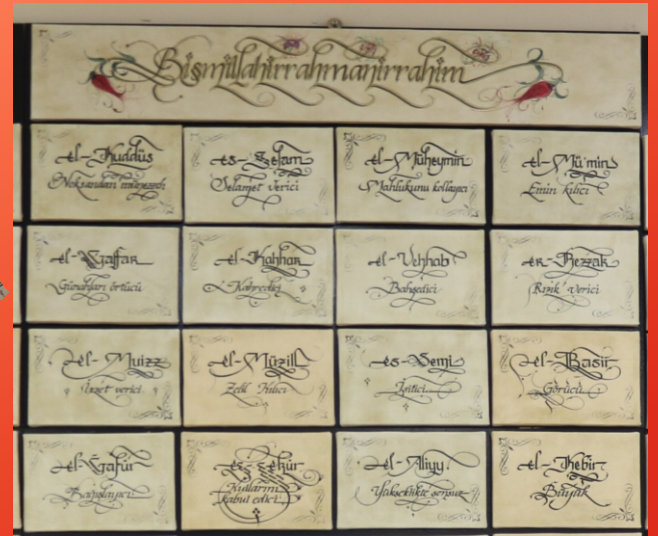 Bismillahirrahmanirrahim
el-Kuddüs
Noksandan münezzeh
es-Selam
Selamet verici
el-Müheymin
Mahlukunu kollayıcı
el-Mü'min
Emin kılıcı
el-Gaffar
Günahları örtücü
el-Kahhar
Kahredici
el-Vehhab
Bahşedici
er-Rezzak
Rızık verici
el-Muizz
İzzet verici
el-Müzill
Zelil Kılıcı
es-Semi
İşitici
el-Basir
Görücü
el-Gafur
Bağışlayıcı
eş-şekür
Kullarını
kabul edici
el-Aliyy
Yükseklikte sonsuz
el-Kebir
Büyük